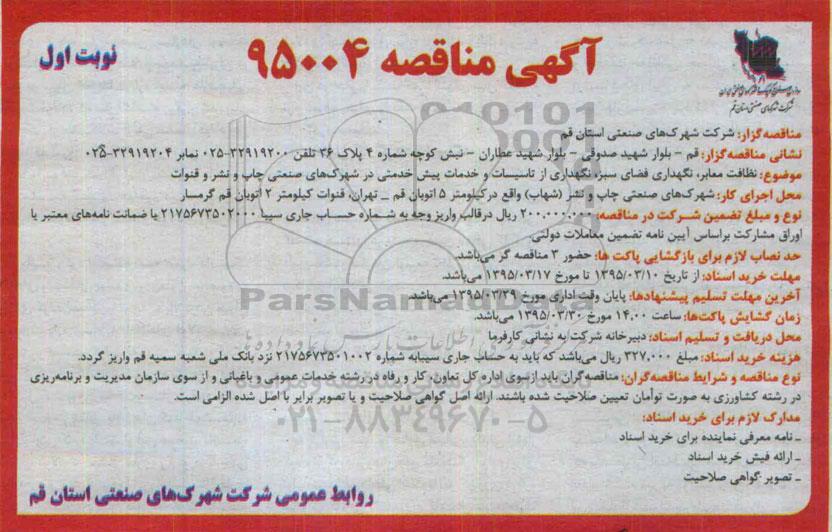 آگهی مناقصه ۹۵۰۰۴
نوبت اول
شرکت شهرکهای صنعتی استان قم
مناقصه‌گزار: شرکت شهرک‌های صنعتی استان قم
نشانی مناقصه‌گزار: قم - بلوار شهید صدوقی - بلوار شهید عطاران - نبش کوچه شماره ۴ پلاک ۳۶ تلفن ۳۲۹۱۹۲۰۰-۰۲۵ نمابر ۳۲۹۱۹۲۰۴-۰۲۵
موضوع: نظافت معابر، نگهداری فضای سبز، نگهداری از تاسیسات و خدمات پیش خدمتی در شهرک‌های صنعتی چاپ و نشر و قنوات
محل اجرای کار: شهرک‌های صنعتی چاپ و نشر (شهاب) واقع درکیلومتر ۵ اتوبان قم _ تهران، قنوات کیلومتر ۲ اتوبان قم گرمسار
نوع و مبلغ تضمین شرکت در مناقصه: ۲۰۰.۰۰۰.۰۰۰ ریال درقالب واریز وجه به شماره حساب جاری سیبا ۲۱۷۵۶۷۳۵۰۲۰۰۰ یا ضمانت نامه‌های معتبر یا
اوراق مشارکت براساس آیین نامه تضمین معاملات دولتی.
حد نصاب لازم برای بازگشایی پاکت ها: حضور ۳ مناقصه گر می‌باشد.
مهلت خرید اسناد: از تاریخ ۱۳۹۵/۰۳/۱۰ تا مورخ ۱۳۹۵/۰۳/۱۷ می‌باشد.
آخرین مهلت تسلیم پیشنهادها: پایان وقت اداری مورخ ۱۳۹۵/۰۳/۲۹ می‌باشد.
زمان گشایش پاکت‌ها: ساعت ۱۴.۰۰ مورخ ۱۳۹۵/۰۳/۳۰ می‌باشد.
محل دریافت و تسلیم اسناد: دبیرخانه شرکت به نشانی کارفرما
هزینه خرید اسناد: مبلغ ۳۲۷.۰۰۰ ریال می‌باشد که باید به حساب جاری سیبابه شماره ۲۱۷۵۶۷۳۵۰۱۰۰۲ نزد بانک ملی شعبه سمیه قم واریز گردد.
نوع مناقصه و شرایط مناقصه‌گران: مناقصه‌گران باید ازسوی اداره کل تعاون کار و رفاه در رشته خدمات عمومی و باغبانی و از سوی سازمان مدیریت و برنامه‌ریزی
در رشته کشاورزی به صورت توأمان تعیین صلاحیت شده باشند. ارائه اصل گواهی صلاحیت و یا تصویر برابر با اصل شده الزامی است.
مدارک لازم برای خرید اسناد:
ـ نامه معرفی نماینده برای خرید اسناد
ـ ارائه فیش خرید اسناد
ـ تصویر گواهی صلاحیت
روابط عمومی شرکت شهرک‌های صنعتی استان قم
ParsNamadData
۰۲۱-۸۸۳۴۹۶۷۰-۵